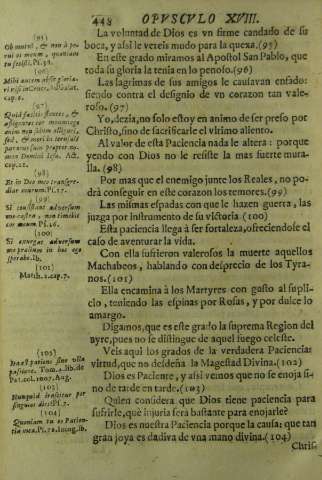 448 OPVSCVLO XVIII.
La voluntad de Dios es vn firme candado de su
boca, y assi le vereis mudo para la quexa.(95)
En este grado miramos al Apostol San Pablo, que
toda su gloria la tenia en lo penoso.(96)
Las lagrimas de sus amigos le causavan enfado:
siendo contra el designio de vn corazon tan vale-
roso.(97)
Yo,dezia,no solo estoy en animo de ser preso por
Christo,sino de sacrificarle el vltimo aliento.
Al valor de esta Paciencia nada le altera: porque
yendo con Dios no le resiste la mas fuerte mura-
lla.(98)
Por mas que el enemigo junte los Reales, no po-
drà conseguir en este corazon temores.(99)
Las mismas espadas con que le hazen guerra, las
juzga por instrumento de su victoria.(100)
Esta paciencia llega à ser fortaleza,ofreciendose el
caso de aventurar la vida.
Con ella sufrieron valerosos la muerte aquellos
Machabeos, hablando con desprecio de los Tyra-
nos.(101)
Ella encamina à los Martyres con gusto al supli-
cio, teniendo las espinas por Rosas, y por dulce lo
amargo.
Digamos,que es este grado la suprema Region del
ayre,pues no se distingue de aquel fuego celeste.
Veis aqui los grados de la verdadera Paciencia:
virtud,que no desdeña la Magestad Divina.(102)
Dios es Paciente, y assi vemos que no se enoja si-
no de tarde en tarde.(103)
Quien considera que Dios tiene paciencia para
sufrirle,què injuria serà bastante para enojarle?
Dios es nuestra Paciencia por la causa: que tan
gran joya es dadiva de vna mano divina.(104)
Chris-
(95)
Obmutui, & non aperui os meum, quoniam
tu fecisti.Ps.38.
(96)
Mihi autem absit gloriari
nisi in Cruce.
cap.6.
(97)
Quid facitis flentes, &
affligentes cor meum?ego
enim non solum alligari,
sed, & mori in Ierusalem
paratus sum propter nomen
Domini Iesu. Act.
cap.21.
(98)
Et in Deo meo transgrediar
murum.Ps.17.
(99)
Si consistant adversum
me castra, non timebit
cor meum.Ps.26.
(100)
Si exurgat adversum
me prælium in hoc ego
sperabo.Ib.
(101)
Mach.2.cap.7.
(102)
(103)
Nunquid irascitur per
singulos dies?Ps.7.
(104)
Quoniam tu es Patientia
mea.Ps.70.